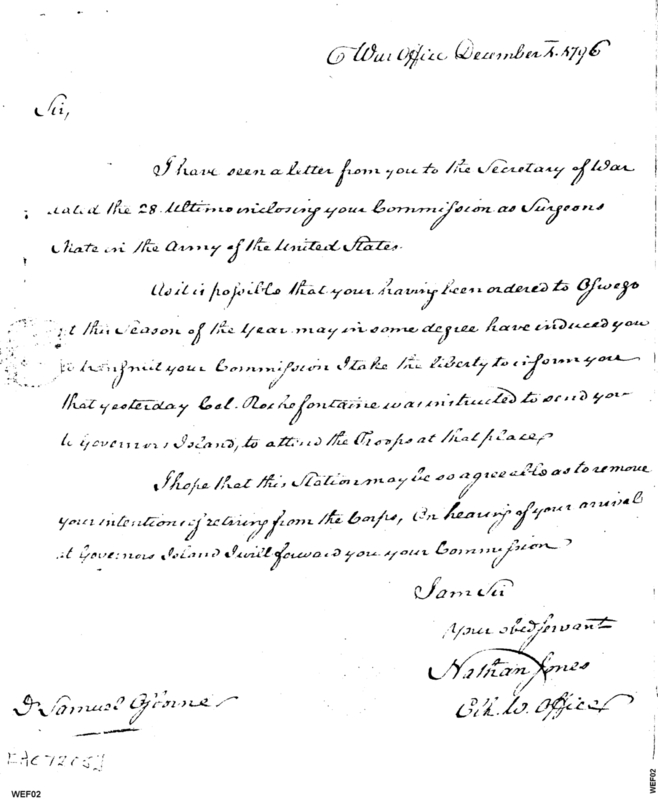 War Office December 1. 1796
Sir,
I have seen a letter from you to the Secretary of War
dated the 28. Ultimo inclosing your Commission as Surgeons
Mate in the Army of the United States.
As it is possible that your having been ordered to Oswego
at this Season of the Year may in some degree have induced you
to transmit your Commission I take the liberty to inform you
that yesterday Col. Rochefontaine was instructed to send you
to Governors Island, to attend the Troops at that place,
I hope that this Station may be so agreeable as to remove
your intention of retiring from the Corps, On hearing of your arrival
at Governors Island I will forward you your Commission
I am Sir
Your obed servant
Nathan Jones
Clk. W. Office
Dr Samuel Osborne
WEF02
WEF02